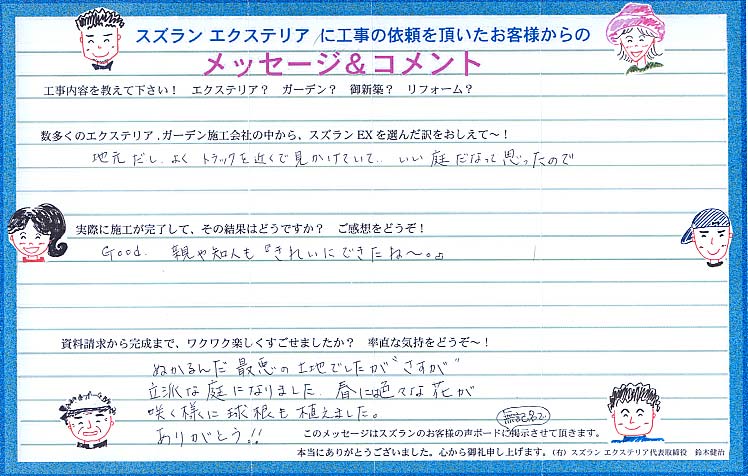 スズラン エクステリア/に工事の依頼を頂いたお客様からの
メッセージ&コメント
工事内容を教えて下さい！ エクステリア？ ガーデン？ 御新築？ リフォーム？
数多くのエクステリア,ガーデン施工会社の中から、スズランEXを選んだ訳をおしえて～！
地元だし、よくトラックを近くで見かけていて、いい庭だなって思ったので
実際に施工が完了して、その結果はどうですか？ ご感想をどうぞ！
Good. 親や知人も『きれいにできたね～。』
資料請求から完成まで、ワクワク楽しくすごせましたか？ 率直な気持をどうぞ～！
ぬかるんだ最悪の土地でしたが"さすが"
立派な庭になりました。春には色々な花が
咲く様に球根も植えました。
ありがとう!!
無記名で
このメッセージはスズランのお客様の声ボードに掲示させて頂きます。
本当にありがとうございました。心から御礼申し上げます。(有) スズラン エクステリア代表取締役 鈴木健治